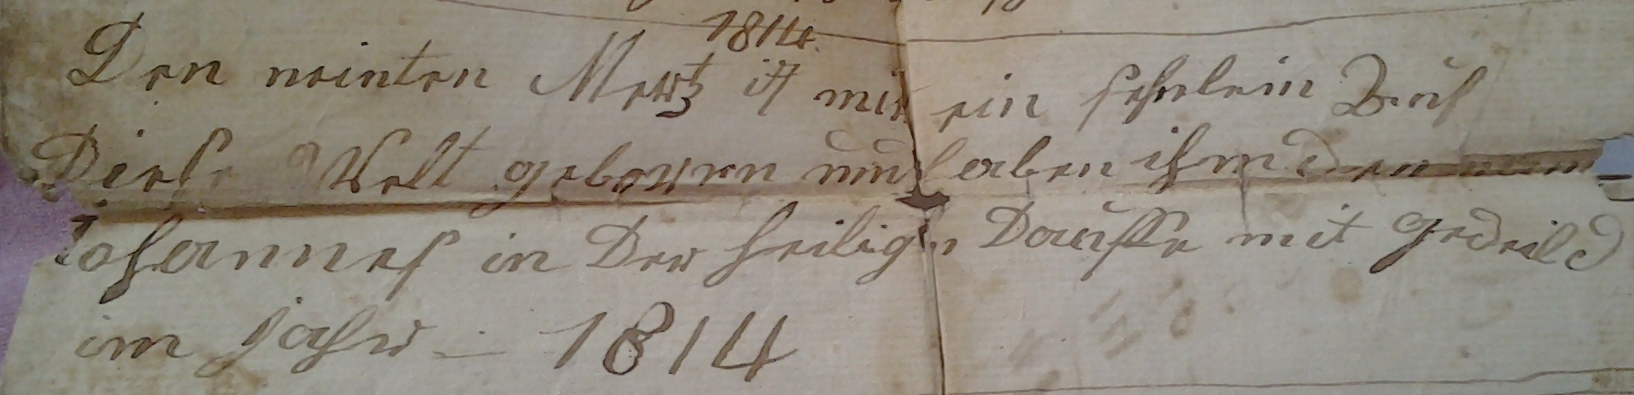 1814
Den neinten Mertz ist mir ein sehnlein Auf
Diese Welt geborren und haben ihm den nam
Johannes in Der heiligen Dauffe mit gedeild
im Jahr – 1814